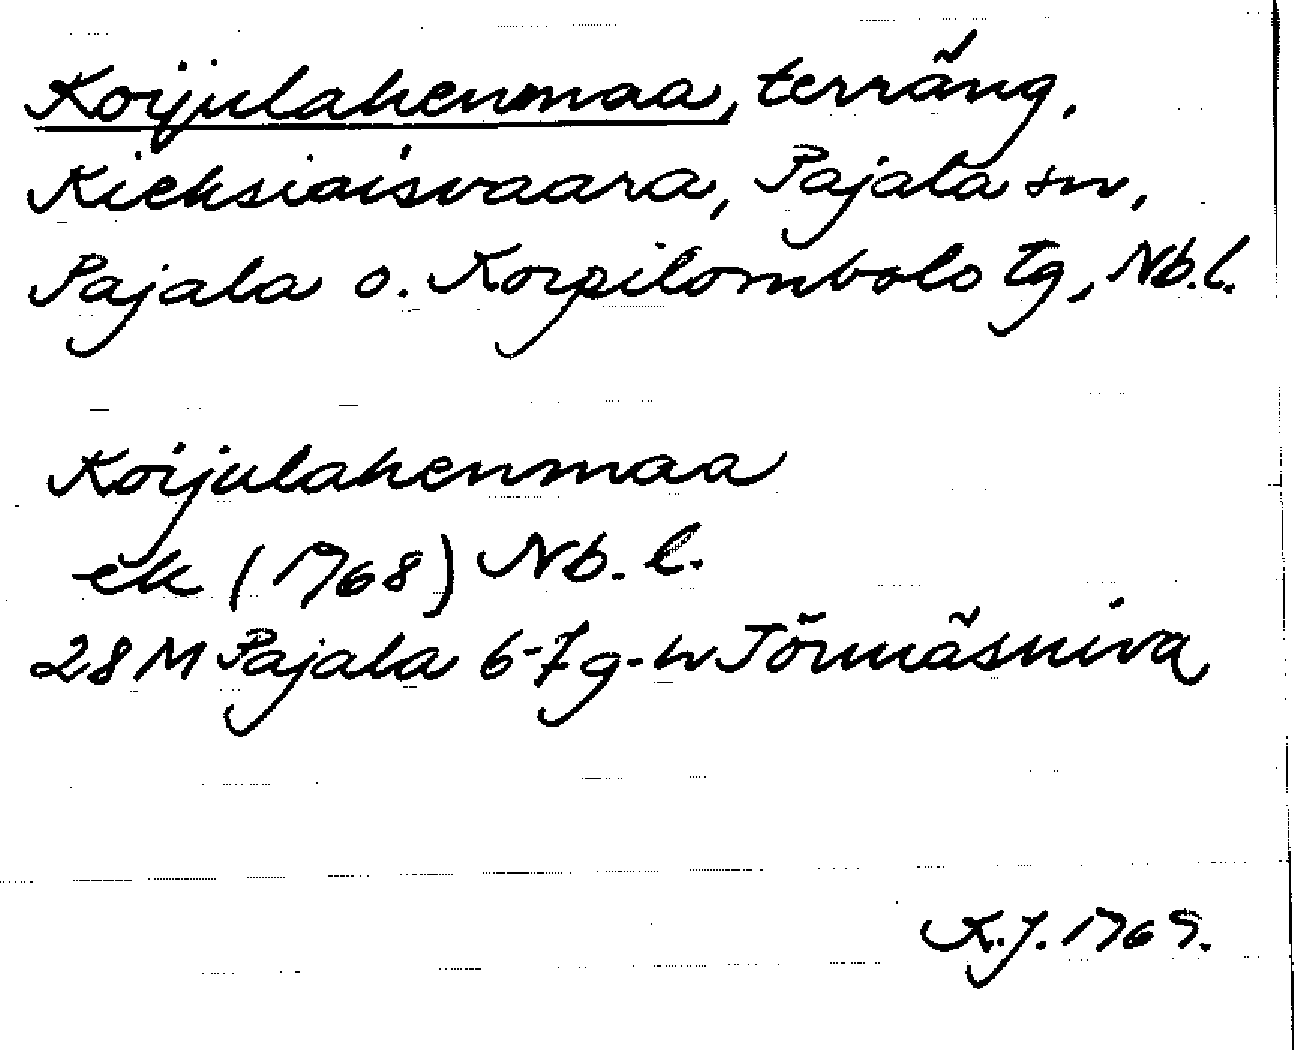 Koijulahenmaa, terräng,
Kieksiäisvaara, Pajala sn,
Pajala o. Korpilombolo tg, Nb.l.
Koijulahenmaa
ek (1968) Nb. l.
28 M Pajala 6-7 g-h Törmäsniva
K.J. 1969.